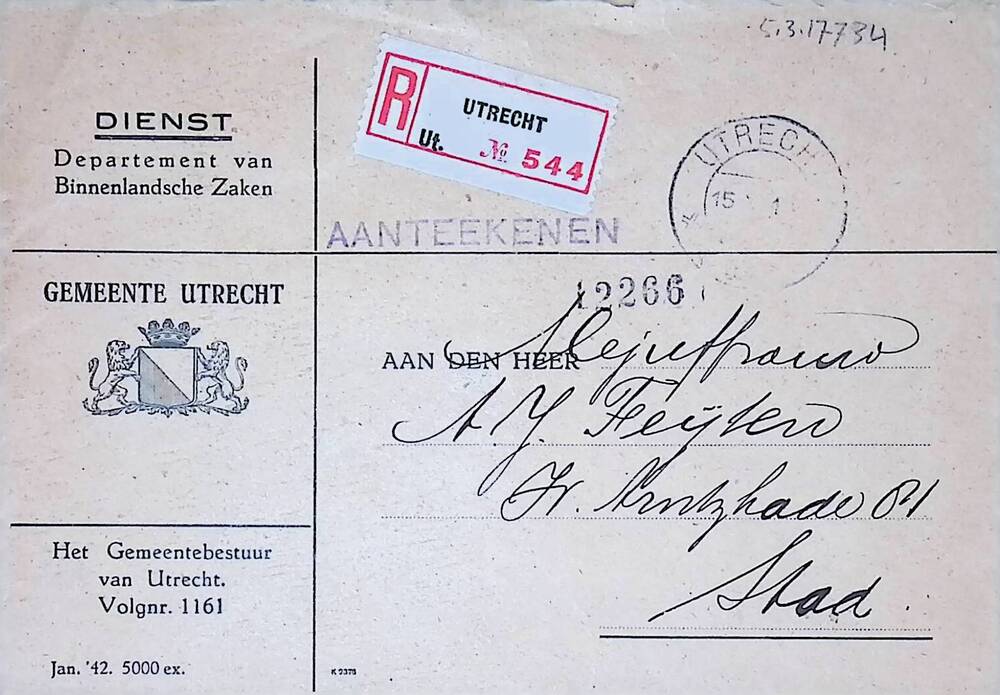 5.3.17734
DIENST
Departement van
Binnenlandsche Zaken
R
UTRECHT
Ut. № 544
UTRECHT
15 1
AANTEEKENEN
GEMEENTE UTRECHT
12266
AAN DEN HEER Mejuffrouw
A. J. Feijten
Fr. Arntzkade 81
Stad
Het Gemeentebestuur
van Utrecht.
Volgnr. 1161
Jan. '42. 5000 ex.
K 2378